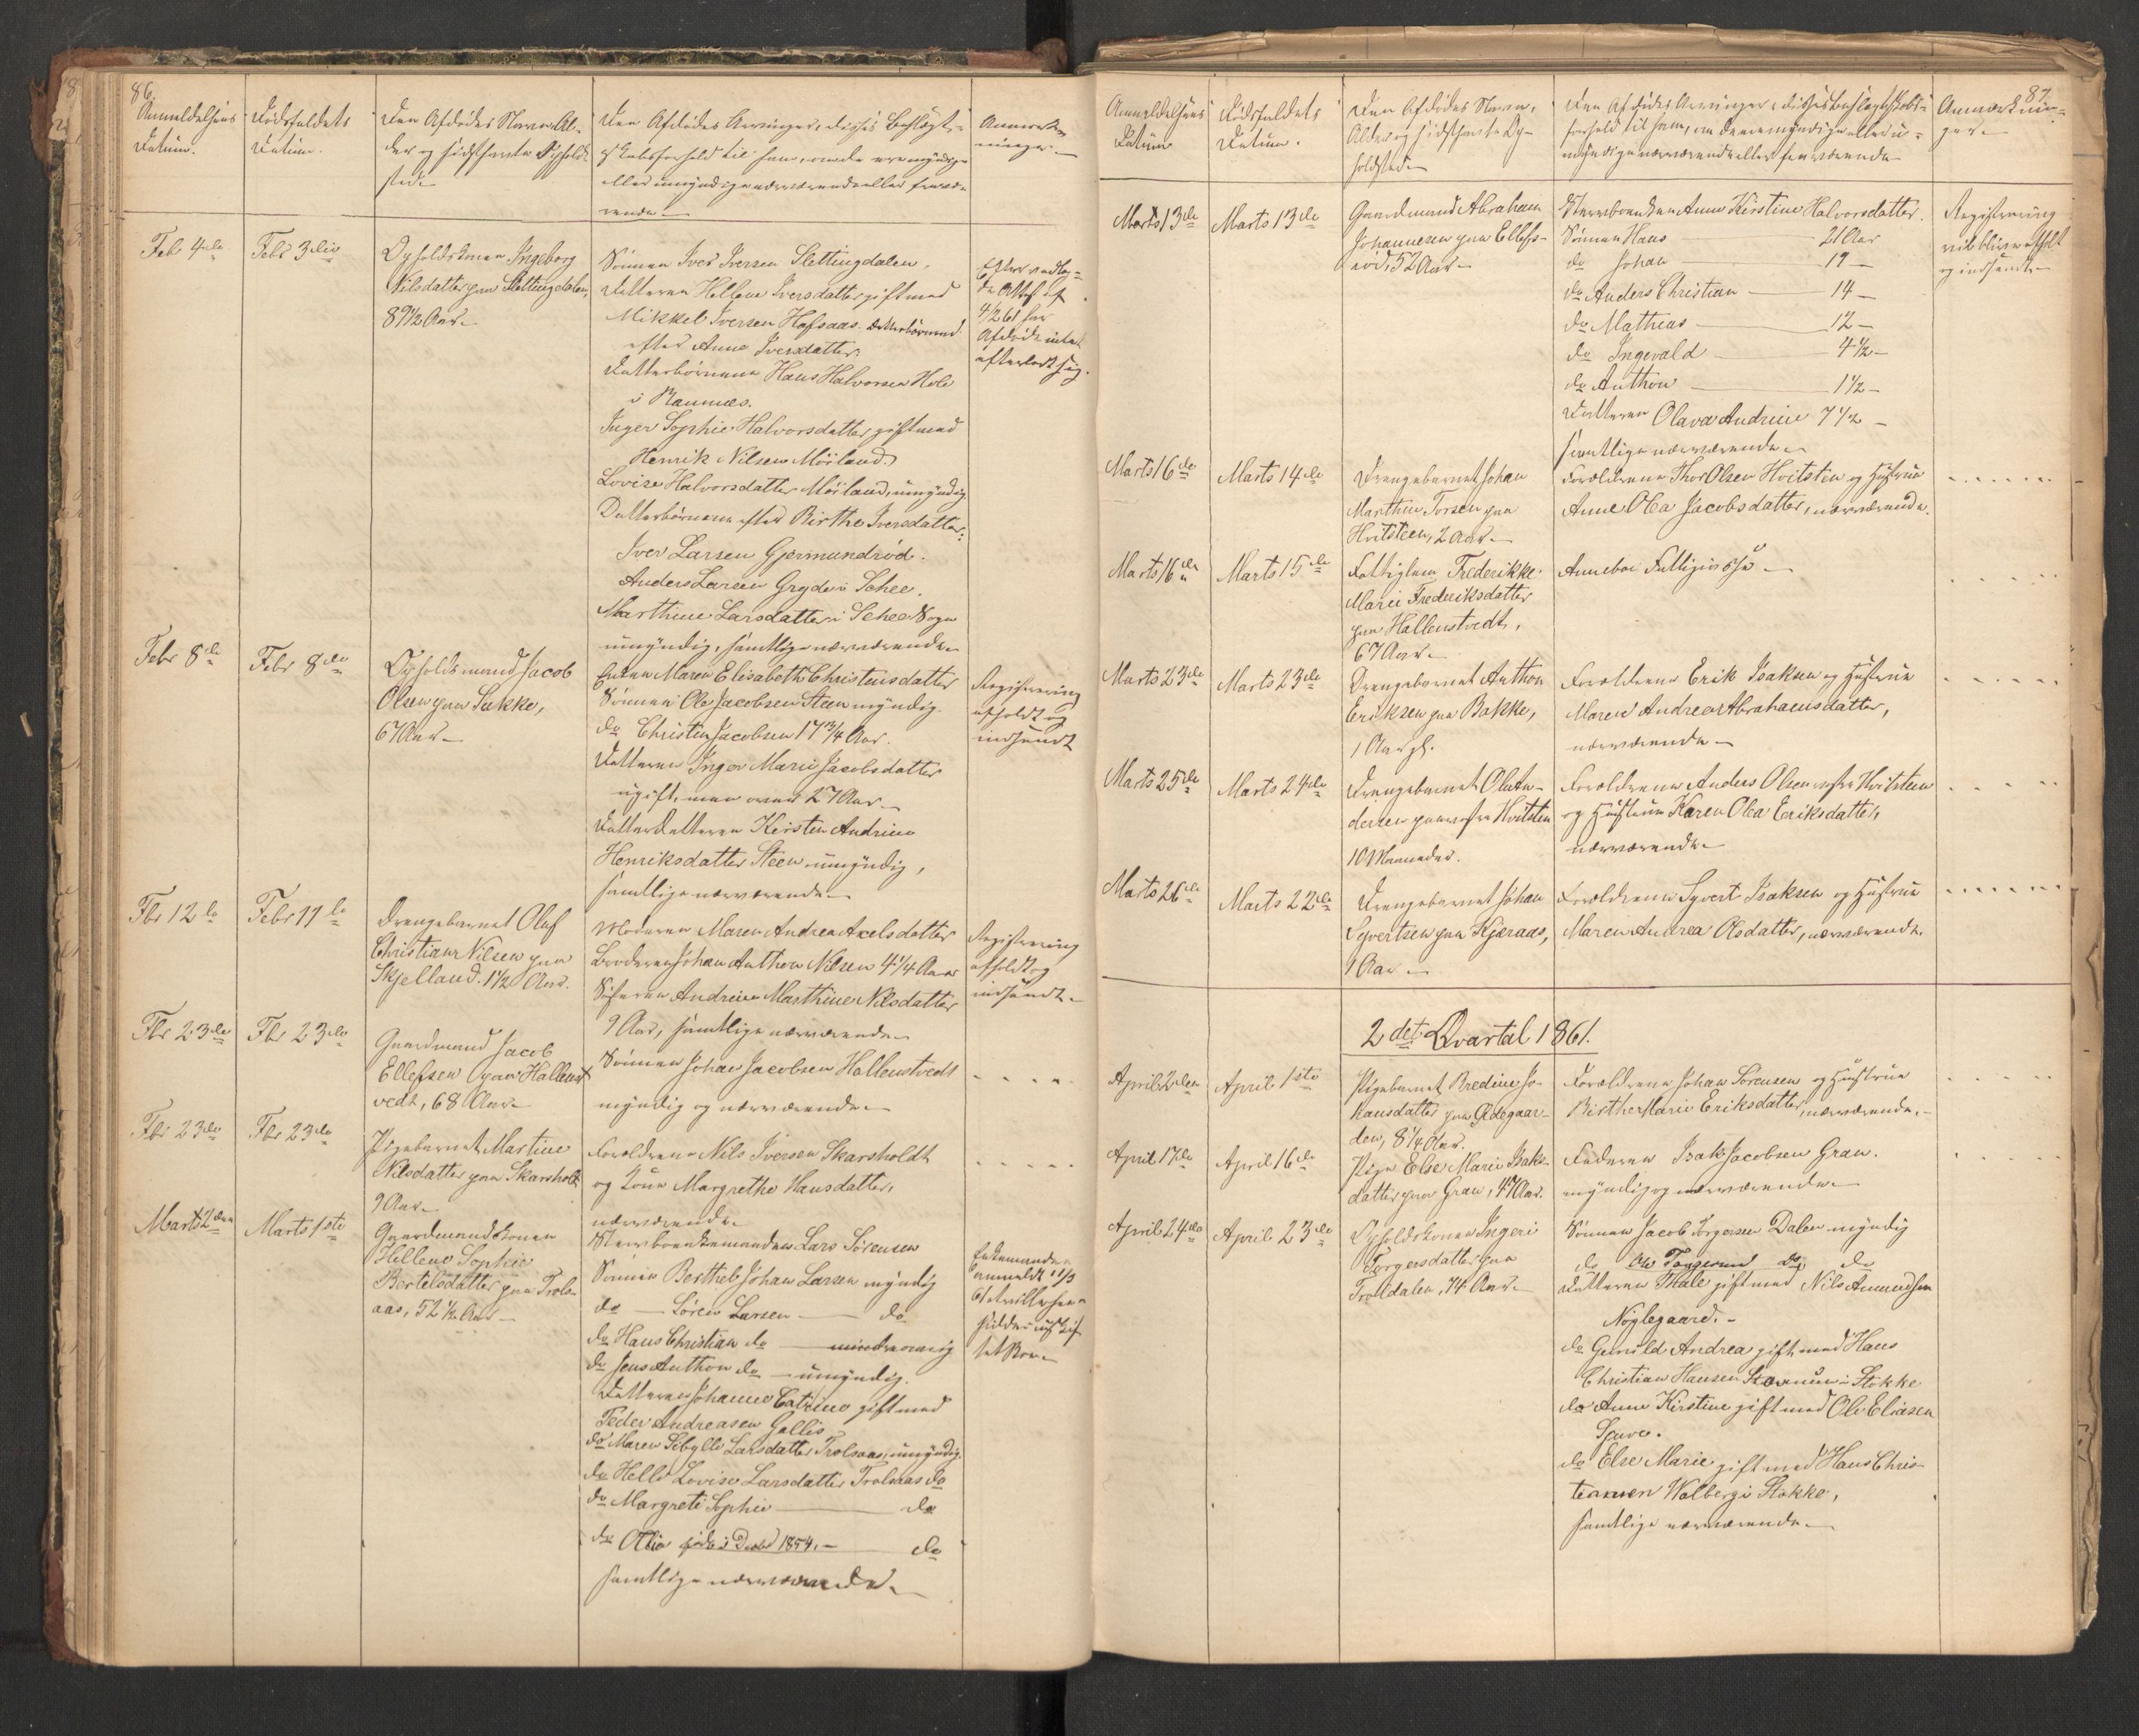 86.
Anmeldelsens
Datum.
Dödsfaldets
Datum.
Den Afdödes Navn, Al-
der og sidsthavte Opholds-
sted
Den Afdödes Arvinger, disses Beslægt-
skabsforhold til ham, om de ere myndige
eller umyndige nærværende eller fravæ-
rende
Anmærk-
ninger.
Feb 4de
Febr 3die
Opholdskonen Ingeborg
Nilsdatter paa Slettingdalen,
89 1/2 Aar
Sönnen Iver Iversen Slettingdalen,
Datteren Hellene Iversdatter gift med
Mikkel Iversen Hafsaas. Datterbörnene
efter Anne Iversdatter:
Datterbörnene Hans Halvorsen Hole
i Ramnæs.
Inger Sophie Halvorsdatter gift med
Henrik Nilsen Möiland.
Lovise Halvorsdatter Möiland, umyndig
Datterbörnene efter Birthe Iversdatter:
Iver Larsen Gjermundröd.
Anders Larsen Gryde i Schee.
Marthine Larsdatter i Schee Sogn
umyndig, samtlige nærværende
Efter vedlag-
te Attest af
4/2 61 har
Afdöde intet
efterladt sig.
Febr 8de
Febr 8de
Opholdsmand Jacob
Olsen paa Sukke,
67 Aar
Enken Maren Elisabeth Christensdatter
Sönnen Ole Jacobsen Steen myndig.
do Christen Jacobsen 17 3/4 Aar.
Datteren Inger Marie Jacobsdatter
ugift, men over 27 Aar
Datterdatteren Kirsten Andrine
Henriksdatter Steen umyndig,
samtlige nærværende
Registrering
afholdt og
indsendt
Fbr 12te
Febr 11te
Drengebarnet Oluf
Christian Nilsen paa
Skjelland. 1 1/2 Aar.
Moderen Maren Andrea Axelsdatter
Broderen Johan Anthon Nilsen 4 1/4 Aar
Sösteren Andrine Marthine Nilsdatter
9 Aar, samtlige nærværende
Registrering
afholdt og
indsendt
Fbr 23de
Fbr 23de
Gaardmand Jacob
Ellefsen paa Hallenst
vedt, 68 Aar
Sönnen Johan Jacobsen Hallenstvedt
myndig og nærværende
Fbr 23de
Fbr 23de
Pigebarnet Martine
Nilsdatter paa Skarsholt
9 Aar
Forældrene Nils Iversen Skarsholdt
og Kone Margrethe Hansdatter,
nærværende
Marts 2den
Marts 1ste
Gaardmandskonen
Hellene Sophie
Bertelsdatter paa Trols-
aas, 52 1/2 Aar
Stervboenkemanden Lars Sörensen
Sönnen Berthel Johan Larsen myndig
do Sören Larsen do
do Hans Christian do mindreaarig
do Jens Anthon do umyndig.
Datteren Johanne Catrine gift med
Peder Andreasen Gallis
do Maren Sibylle Larsdatter Trolsaas, umyndig
do Helle Lovise Larsdatter Trolsaas do
do Margrete Sophie do
do Otilie födt i Decbr 1854. do
samtlige nærværende
Enkemanden
anmeldt 1/3
61 at ville hen-
sidde i uskif-
tet Boe.
87.
Anmeldelsens
Datum
Dödsfaldets
Datum.
Den Afdödes Navn,
Alder og sidsthavte Op-
holdsted
Den Afdödes Arvinger, disses Beslægtskabs-
forhold til ham, om de ere myndige eller u-
myndige nærværende eller fraværende
Anmærknin-
ger
Marts 13de
Marts 13de
Gaardmand Abraham
Johannesen paa Ellefs-
röd, 52 Aar
Stervboenken Anne Kirstine Halvorsdatter.
Sönnen Hans 21 Aar
do Johan 19
do Anders Christian 14
do Mathias 12
do Ingevald 4 1/2
do Anthon 1 1/2
Datteren Olava Andrine 7 1/2
samtlige nærværende
Registrering
vil blive afholdt
og indsendt
Marts 16de
Marts 14de
Drengebarnet Johan
Marthin Torsen paa
Hvitsteen, 2 Aar
Forældrene Thor Olsen Hvitsten og Hustrue
Anne Olea Jacobsdatter, nærværende.
Marts 16de
Marts 15de
Fattiglem Frederikke
Marie Frederiksdatter
paa Hallenstvedt,
67 Aar
Anneboe Fattigvæsen
Marts 23de
Marts 23de
Drengebarnet Anthon
Eriksen paa Bakke,
1 Aar gl.
Forældrene Erik Isaksen og Hustrue
Maren Andrea Abrahamsdatter,
nærværende
Marts 25de
Marts 24de
Drengebarnet Ole An-
dersen paa nedre Hvitsten
10 Maaneder.
Forældrene Anders Olsen nedre Hvitsteen
og Hustrue Karen Olea Eriksdatter,
nærværende
Marts 26de
Marts 22de
Drengebarnet Johan
Syvertsen paa Kjæraas,
1 Aar
Forældrene Syvert Isaksen og Hustrue
Maren Andrea Olsdatter, nærværende.
2det Qvartal 1861.
April 2den
April 1ste
Pigebarnet Bredine Jo-
hansdatter paa Ödegaar-
den, 8 1/4 Aar.
Forældrene Johan Sörensen og Hustrue
Birthe Marie Eriksdatter, nærværende.
April 17de
April 16de
Pige Else Marie Isaks-
datter paa Gran, 47 Aar.
Faderen Isak Jacobsen Gran.
myndig og nærværende
April 24de
April 23de
Opholdskonen Ingeri
Torgersdatter paa
Troldalen, 74 Aar
Sönnen Jacob Torgersen Dalen myndig
do Ole Tangerud do do
Datteren Thale gift med Nils Amundsen
Nöglegaard.
do Gunild Andrea gift med Hans
Christian Hansen i Stokke
do Anne Kirstine gift med Ole Eliasen
do Else Marie gift med Hans Chris-
tiansen Walberg i Stokke,
samtlige nærværende